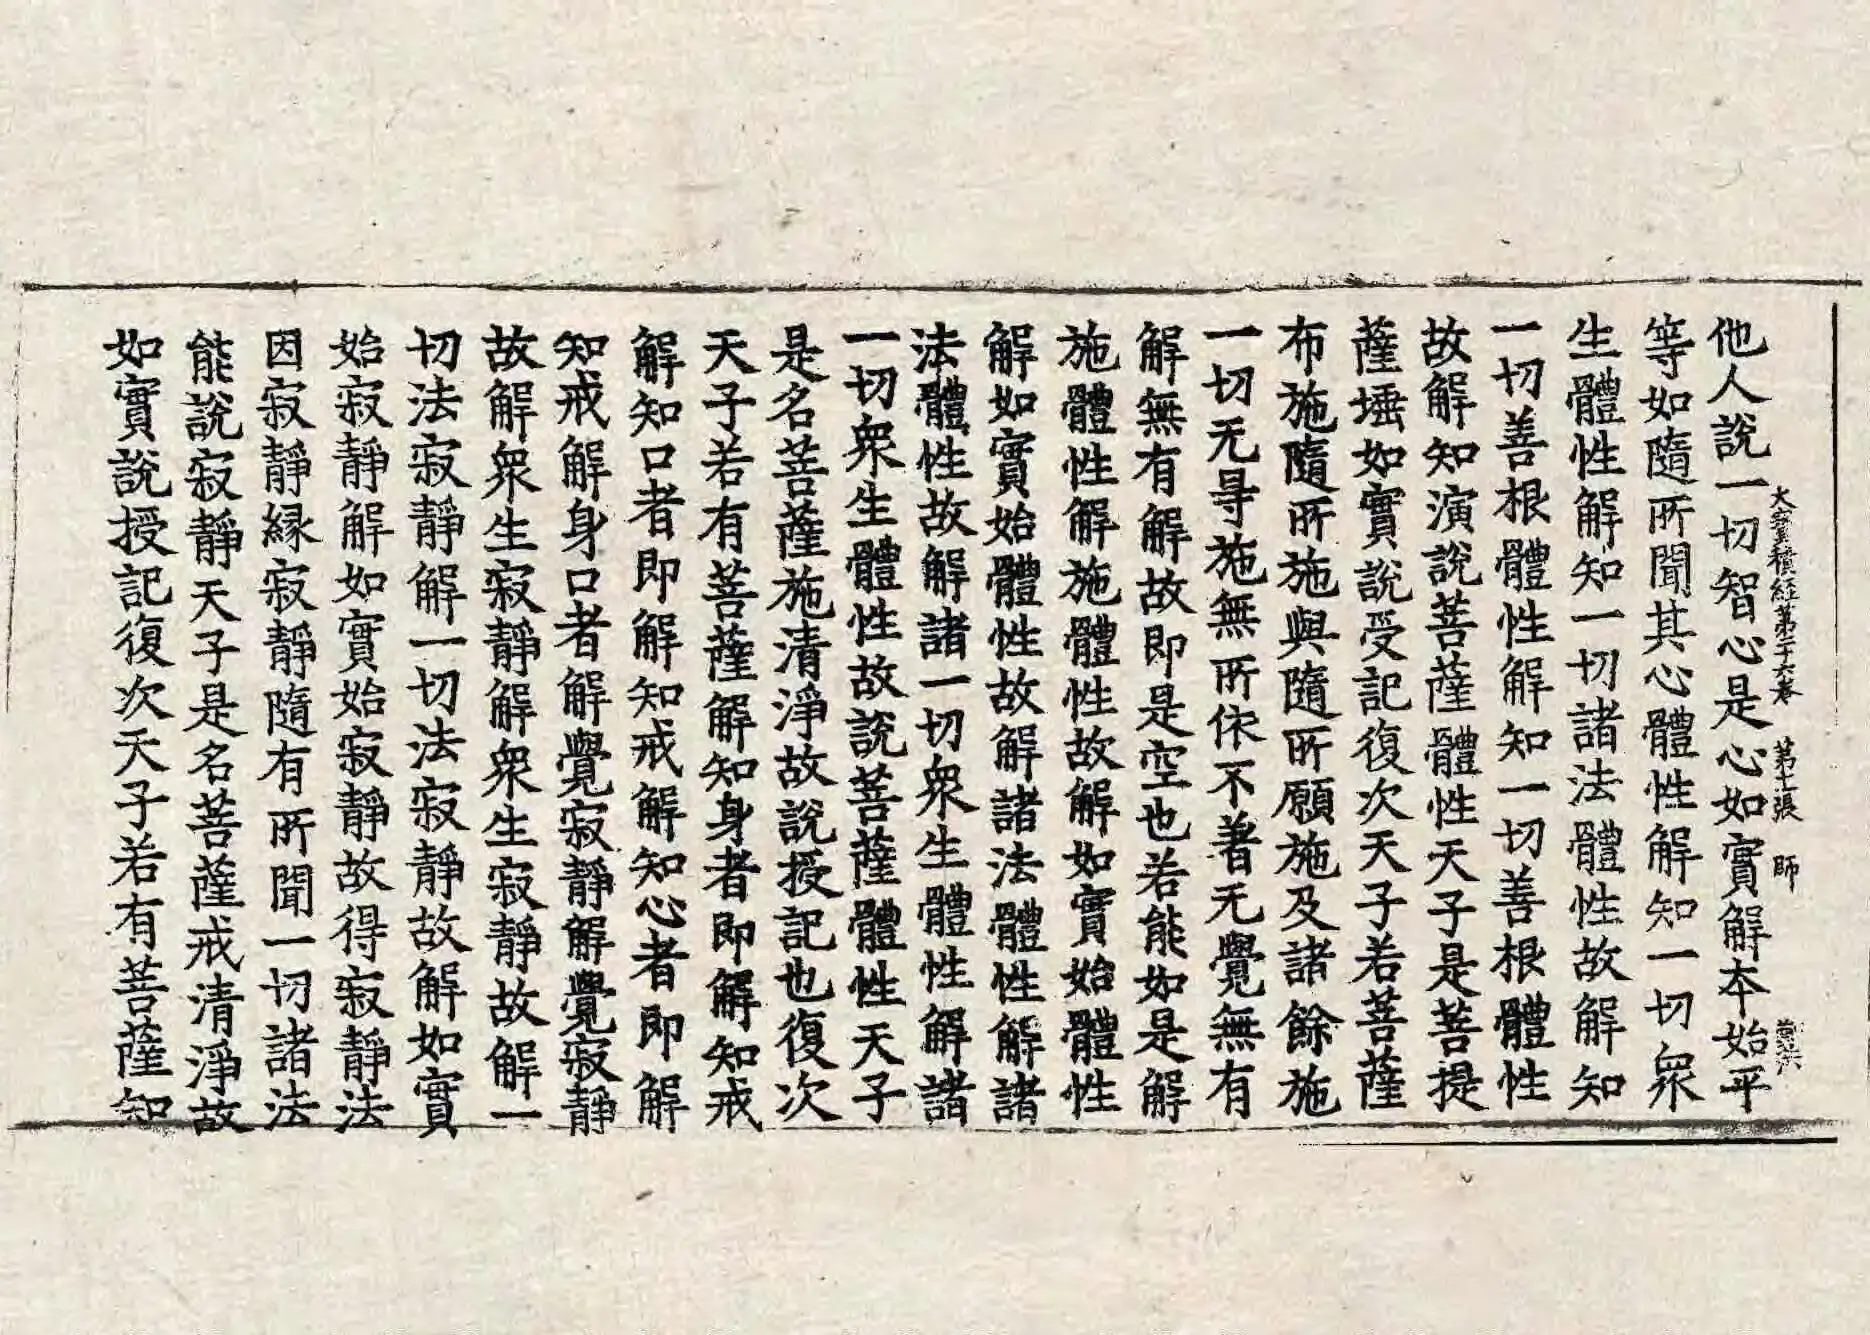 大寶積經第二十六卷 第十七張 師
他人說一切智心是心如實解本始平
等如隨所聞其心體性解知一切衆
生體性解知一切諸法體性故解知
一切善根體性解知一切善根體性
故解知演說菩薩體性天子是菩提
薩埵如實說受記復次天子若菩薩
布施隨所施與隨所願施及諸餘施
一切无㝵施無所依不著无覺無有
解無有解故即是空也若能如是解
施體性解施體性故解如實始體性
解如實始體性故解諸法體性解諸
法體性故解諸一切衆生體性解諸
一切衆生體性故說菩薩體性天子
是名菩薩施清淨故說授記也復次
天子若有菩薩解知身者即解知戒
解知口者即解知戒解知心者即解
知戒解身口者解覺寂靜解覺寂靜
故解衆生寂靜解衆生寂靜故解一
切法寂靜解一切法寂靜故解如實
始寂靜解如實始寂靜故得寂靜法
因寂靜緣寂靜隨有所聞一切諸法
能說寂靜天子是名菩薩戒清淨故
如實說授記復次天子若有菩薩知